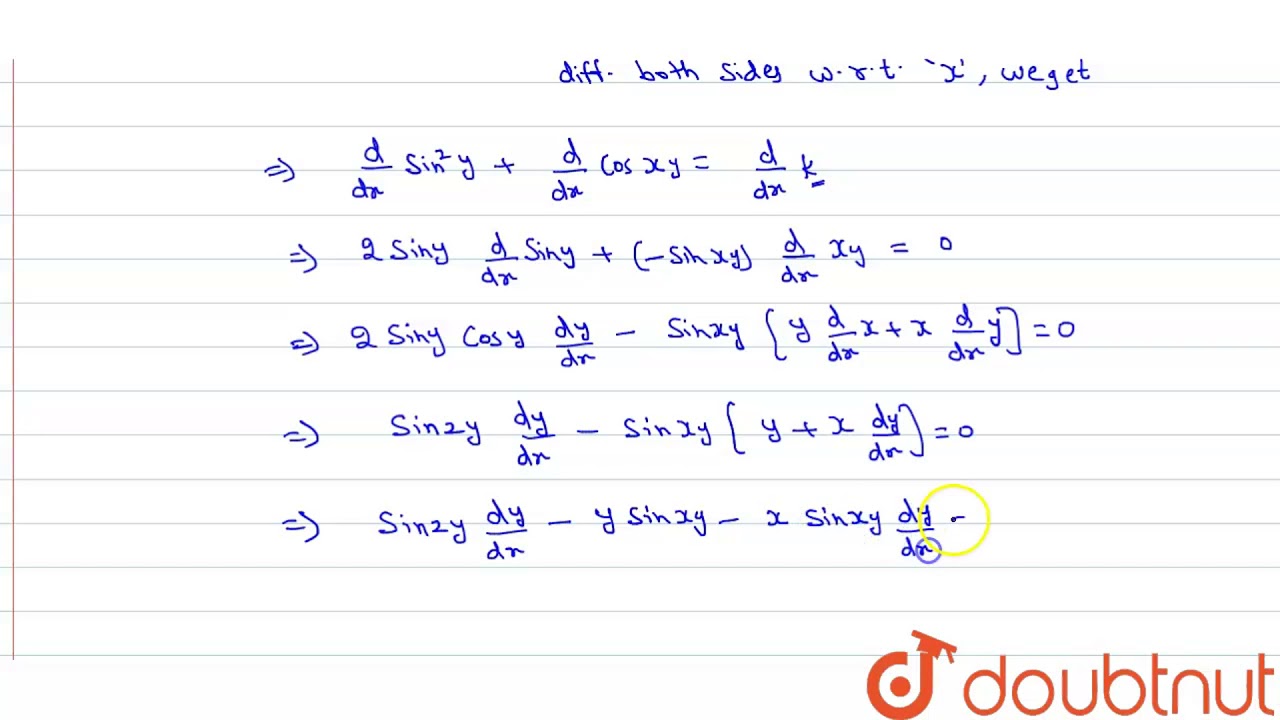 diff. both sides w.r.t. 'x', we get
=> d/dx Sin²y + d/dx Cos xy = d/dx k
=> 2 Siny d/dx Siny + (-Sin xy) d/dx xy = 0
=> 2 Siny Cosy dy/dx - Sinxy [y d/dx x + x d/dx y] = 0
=> Sin2y dy/dx - Sinxy [y + x dy/dx] = 0
=> Sin2y dy/dx - y Sinxy - x Sinxy dy/dx -
doubtnut